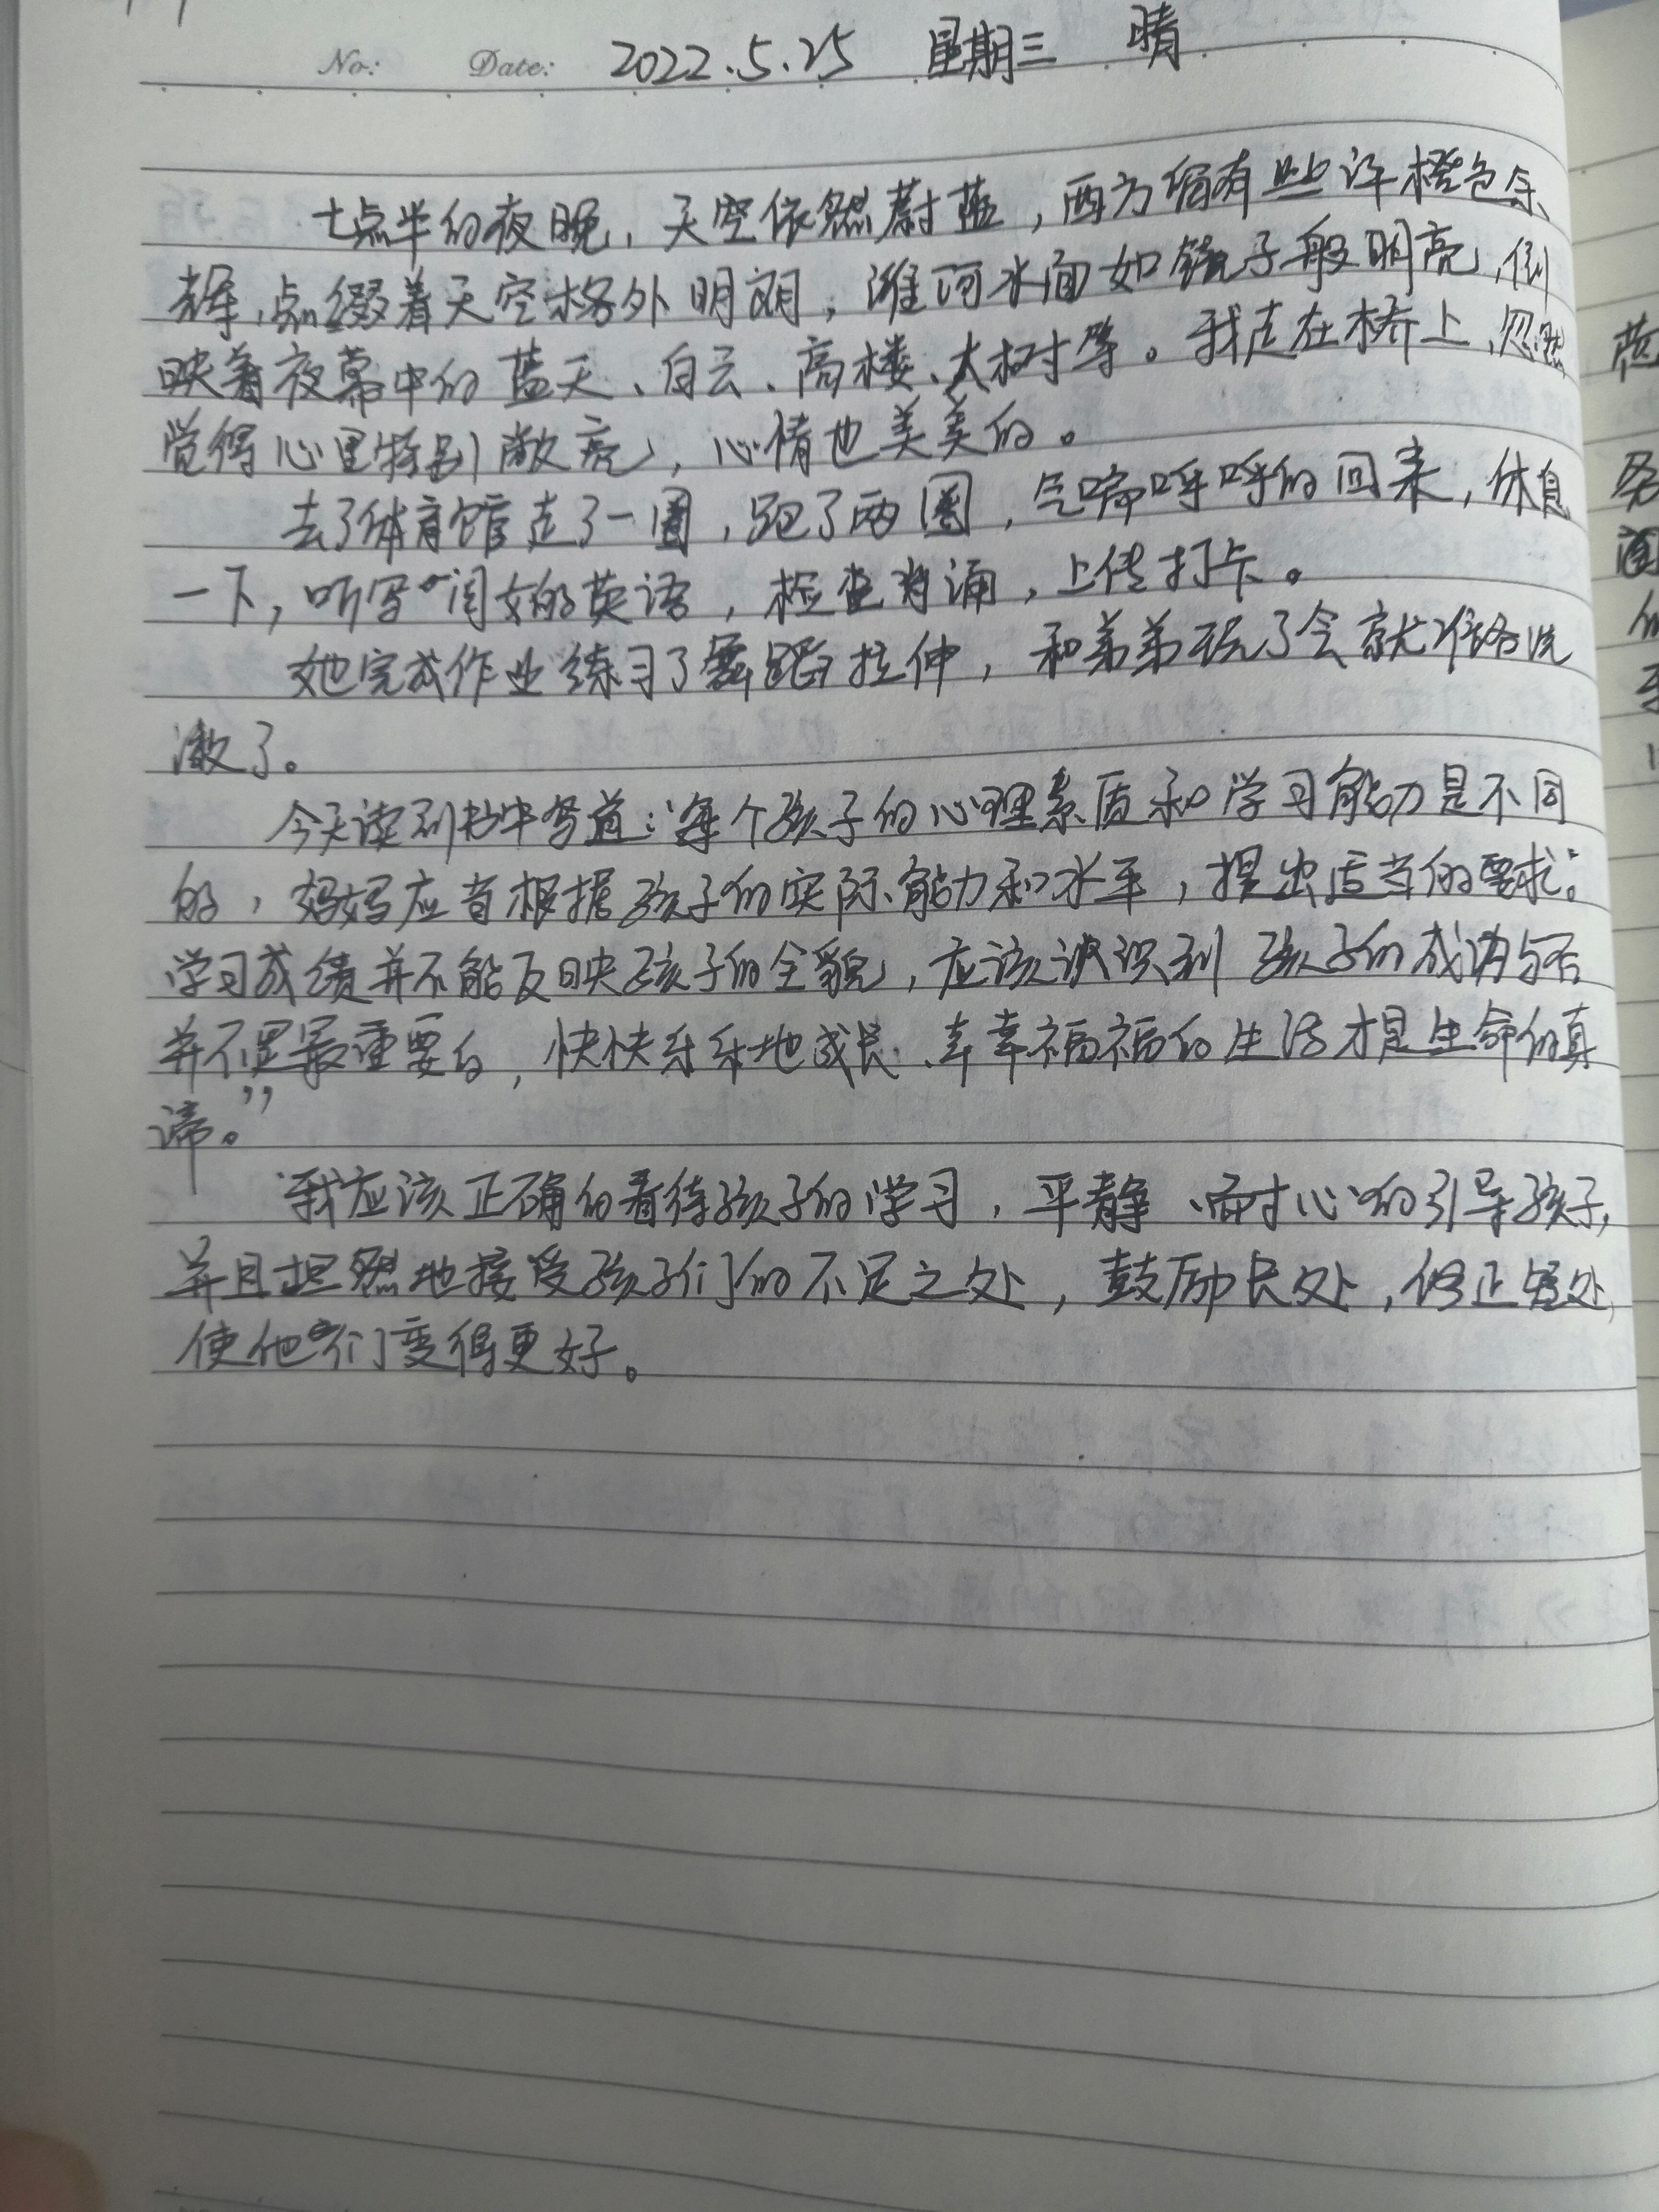 No: Date: 2022.5.25 星期三 晴
七点半的夜晚，天空依然蔚蓝，西方留有些许橙色余
辉，点缀着天空格外明朗，潍河水面如镜子般明亮，倒
映着夜幕中的蓝天、白云、高楼、大树等。我走在桥上，忽然
觉得心里特别敞亮，心情也美美的。
去了体育馆走了一圈，跑了两圈，气喘呼呼的回来，休息
一下，听写闺女的英语，检查背诵，上传打卡。
她完成作业练习了舞蹈拉伸，和弟弟玩了会就准备洗
漱了。
今天读到书中写道：“每个孩子的心理素质和学习能力是不同
的，妈妈应当根据孩子的实际能力和水平，提出适当的要求。
学习成绩并不能反映孩子的全貌，应该认识到孩子的成功与否
并不是最重要的，快快乐乐地成长、幸幸福福的生活才是生命的真
谛。”
我应该正确的看待孩子的学习，平静、耐心的引导孩子，
并且坦然地接受孩子们的不足之处，鼓励长处，修正短处，
使他们变得更好。